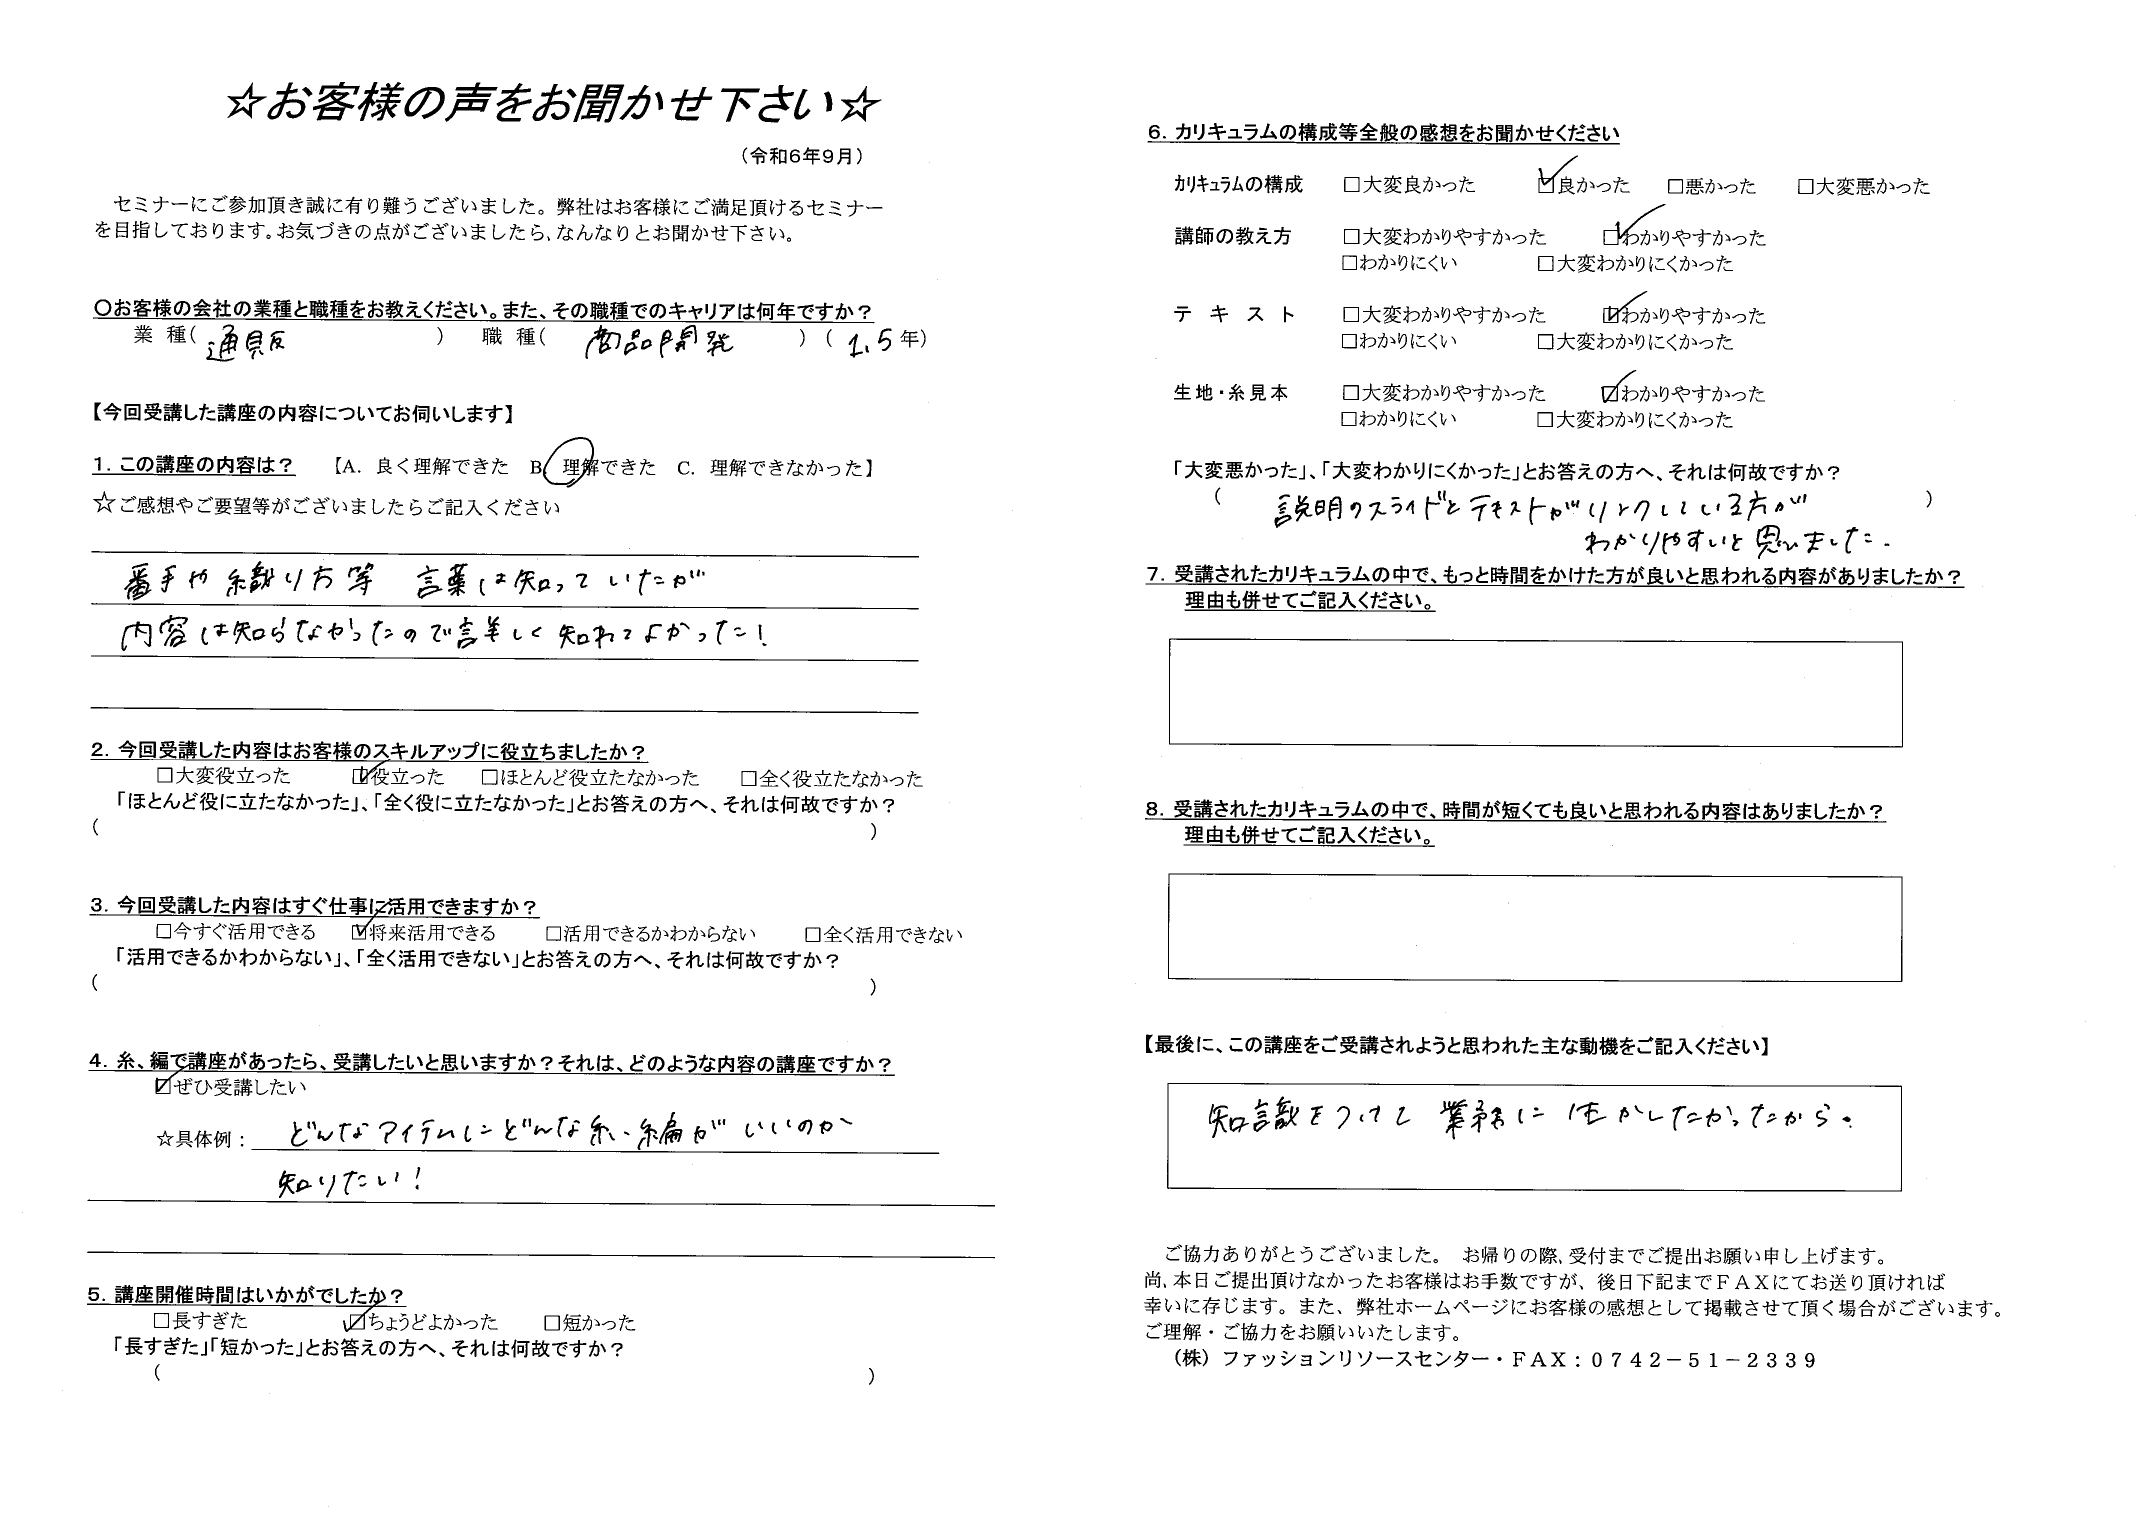 ☆お客様の声をお聞かせ下さい☆
（令和6年9月）
セミナーにご参加頂き誠に有り難うございました。弊社はお客様にご満足頂けるセミナー
を目指しております。お気づきの点がございましたら、なんなりとお聞かせ下さい。
〇お客様の会社の業種と職種をお教えください。また、その職種でのキャリアは何年ですか？
業 種（ 通販 ） 職 種（ 商品開発 ）（ 1.5 年）
【今回受講した講座の内容についてお伺いします】
1. この講座の内容は？ 【A. 良く理解できた B. 理解できた C. 理解できなかった】
☆ご感想やご要望等がございましたらご記入ください
番手や 織り方等 言葉は知っていたが
内容は知らなかったので詳しく知れてよかった！
2. 今回受講した内容はお客様のスキルアップに役立ちましたか？
□大変役立った ☑役立った □ほとんど役立たなかった □全く役立たなかった
「ほとんど役に立たなかった」、「全く役に立たなかった」とお答えの方へ、それは何故ですか？
（ ）
3. 今回受講した内容はすぐ仕事に活用できますか？
□今すぐ活用できる ☑将来活用できる □活用できるかわからない □全く活用できない
「活用できるかわからない」、「全く活用できない」とお答えの方へ、それは何故ですか？
（ ）
4. 糸、編で講座があったら、受講したいと思いますか？それは、どのような内容の講座ですか？
☑ぜひ受講したい
☆具体例： どんなアイテムにどんな糸、編がいいのか
知りたい！
5. 講座開催時間はいかがでしたか？
□長すぎた ☑ちょうどよかった □短かった
「長すぎた」「短かった」とお答えの方へ、それは何故ですか？
（ ）
6. カリキュラムの構成等全般の感想をお聞かせください
カリキュラムの構成 □大変良かった ☑良かった □悪かった □大変悪かった
講師の教え方 □大変わかりやすかった ☑わかりやすかった
□わかりにくい □大変わかりにくかった
テ キ ス ト □大変わかりやすかった ☑わかりやすかった
□わかりにくい □大変わかりにくかった
生地・糸見本 □大変わかりやすかった ☑わかりやすかった
□わかりにくい □大変わかりにくかった
「大変悪かった」、「大変わかりにくかった」とお答えの方へ、それは何故ですか？
（ 説明のスライドとテキストがリンクしている方が ）
わかりやすいと思いました。
7. 受講されたカリキュラムの中で、もっと時間をかけた方が良いと思われる内容がありましたか？
理由も併せてご記入ください。
8. 受講されたカリキュラムの中で、時間が短くても良いと思われる内容はありましたか？
理由も併せてご記入ください。
【最後に、この講座をご受講されようと思われた主な動機をご記入ください】
知識をつけて 業務に活かしたかったから。
ご協力ありがとうございました。 お帰りの際、受付までご提出お願い申し上げます。
尚、本日ご提出頂けなかったお客様はお手数ですが、後日下記までＦＡＸにてお送り頂ければ
幸いに存じます。また、弊社ホームページにお客様の感想として掲載させて頂く場合がございます。
ご理解・ご協力をお願いいたします。
（株）ファッションリソースセンター・ＦＡＸ：０７４２－５１－２３３９